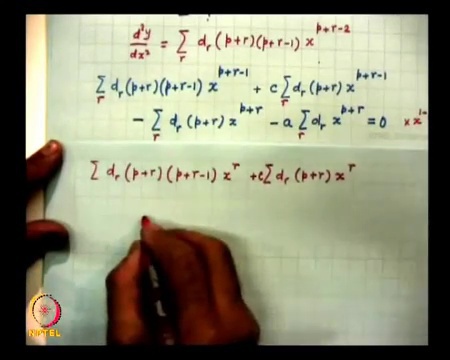 d²y/dx² = Σ_r d_r (p+r)(p+r-1) x^{p+r-2}
Σ_r d_r (p+r)(p+r-1) x^{p+r-1} + c Σ_r d_r (p+r) x^{p+r-1}
- Σ_r d_r (p+r) x^{p+r} - a Σ_r d_r x^{p+r} = 0 × x^{1-
Σ d_r (p+r)(p+r-1) x^r + c Σ d_r (p+r) x^r
NPTEL